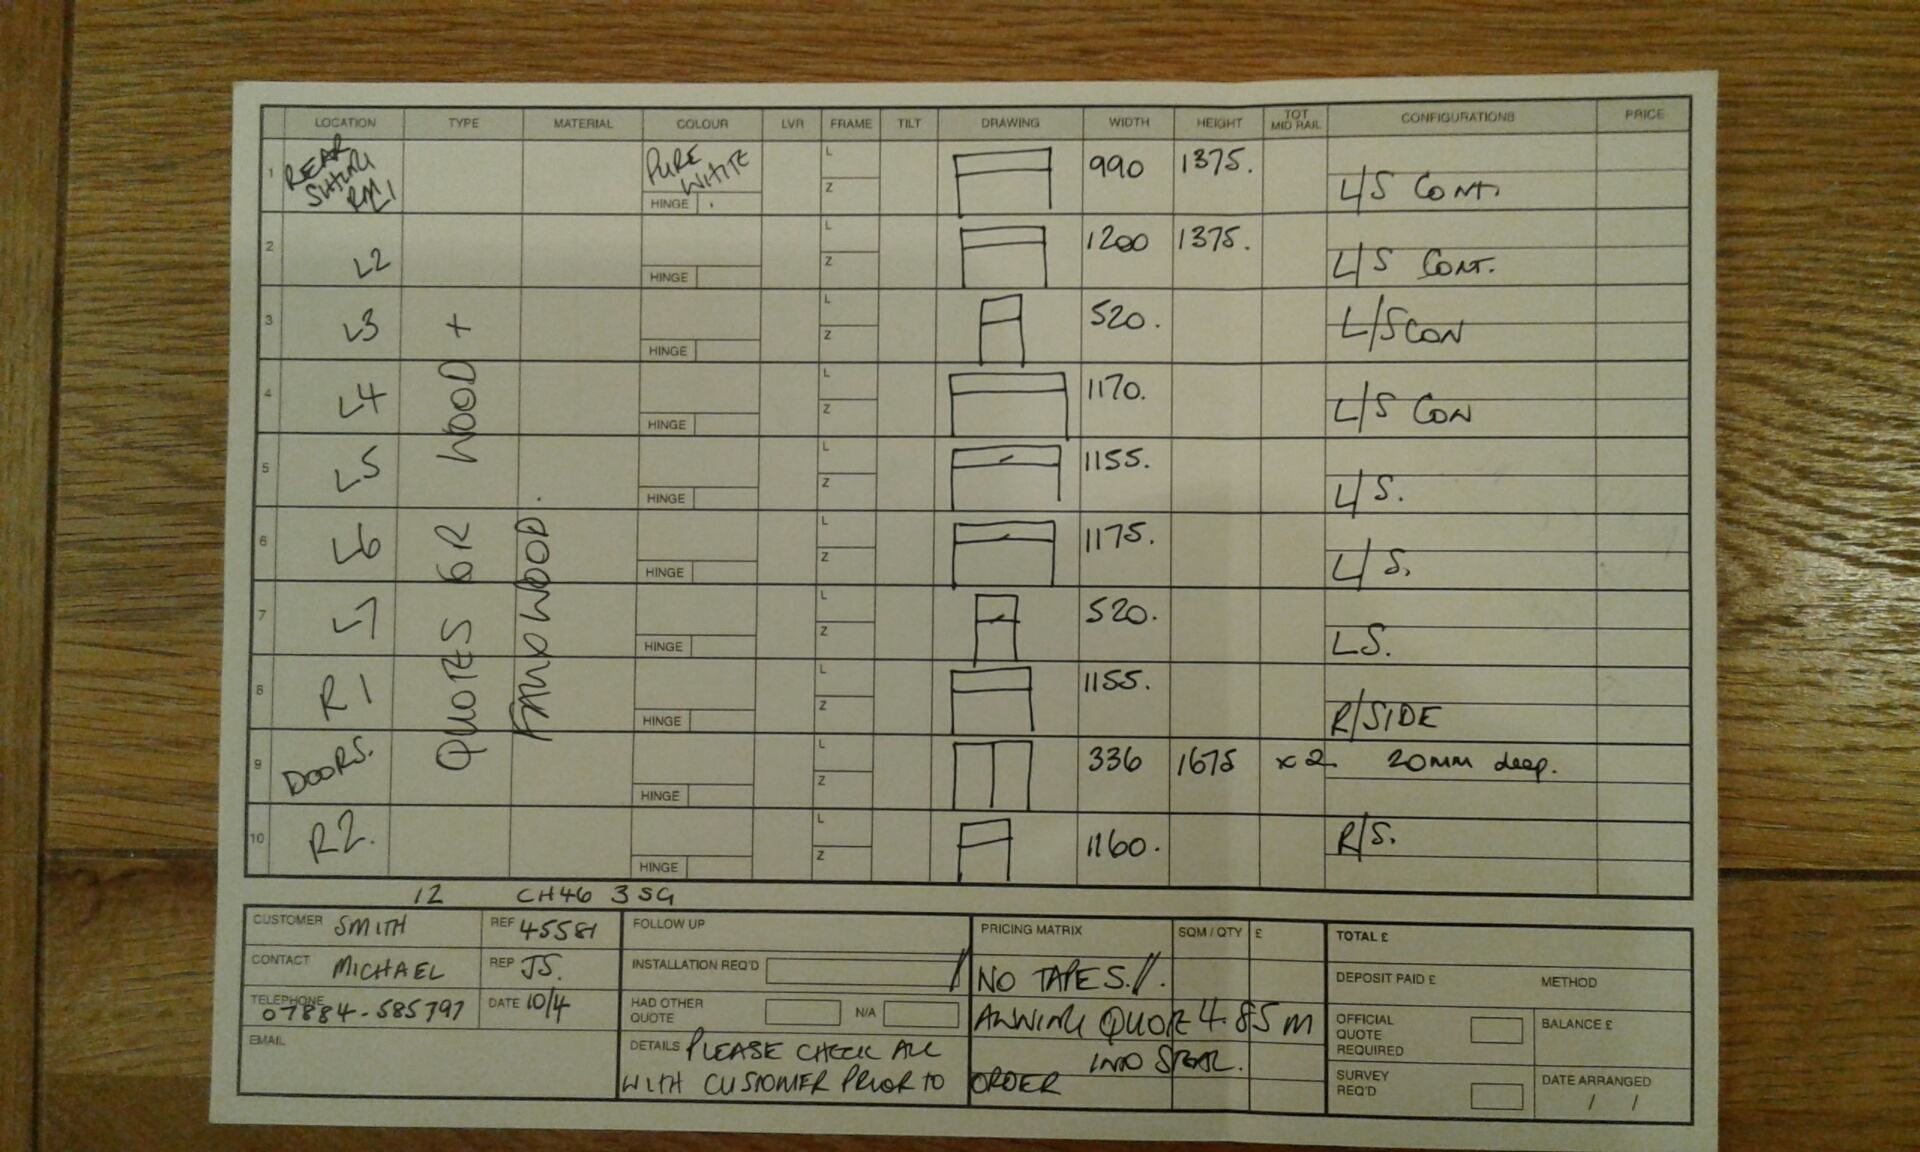 LOCATION TYPE MATERIAL COLOUR LVR FRAME TILT DRAWING WIDTH HEIGHT TOT MID RAIL CONFIGURATIONS PRICE
1 REAR RM1 PURE WHITE HINGE L Z 990 1375. L/S CONT.
2 L2 HINGE L Z 1200 1375. L/S CONT.
3 L3 HINGE L Z 520. L/S CON
4 L4 HINGE L Z 1170. L/S CON
5 L5 HINGE L Z 1155. L/S.
6 L6 HINGE L Z 1175. L/S.
7 L7 HINGE L Z 520. LS.
8 R1 HINGE L Z 1155. R/SIDE
9 DOORS. HINGE L Z 336 1675 x2 20mm deep.
10 R2. HINGE L Z 1160. R/S.
QUOTES WOOD +
FAUXWOOD.
12 CH46 3SG
CUSTOMER SMITH REF 45581
CONTACT MICHAEL REP JS.
TELEPHONE 07884-585797 DATE 10/4
EMAIL
FOLLOW UP
INSTALLATION REQ'D
HAD OTHER QUOTE N/A
DETAILS PLEASE CHECK ALL
WITH CUSTOMER PRIOR TO ORDER
PRICING MATRIX SQM / QTY £
NO TAPES.//.
AWNING QUOTE 4.85m
INTO
TOTAL £
DEPOSIT PAID £ METHOD
OFFICIAL QUOTE REQUIRED BALANCE £
SURVEY REQ'D DATE ARRANGED
/ /